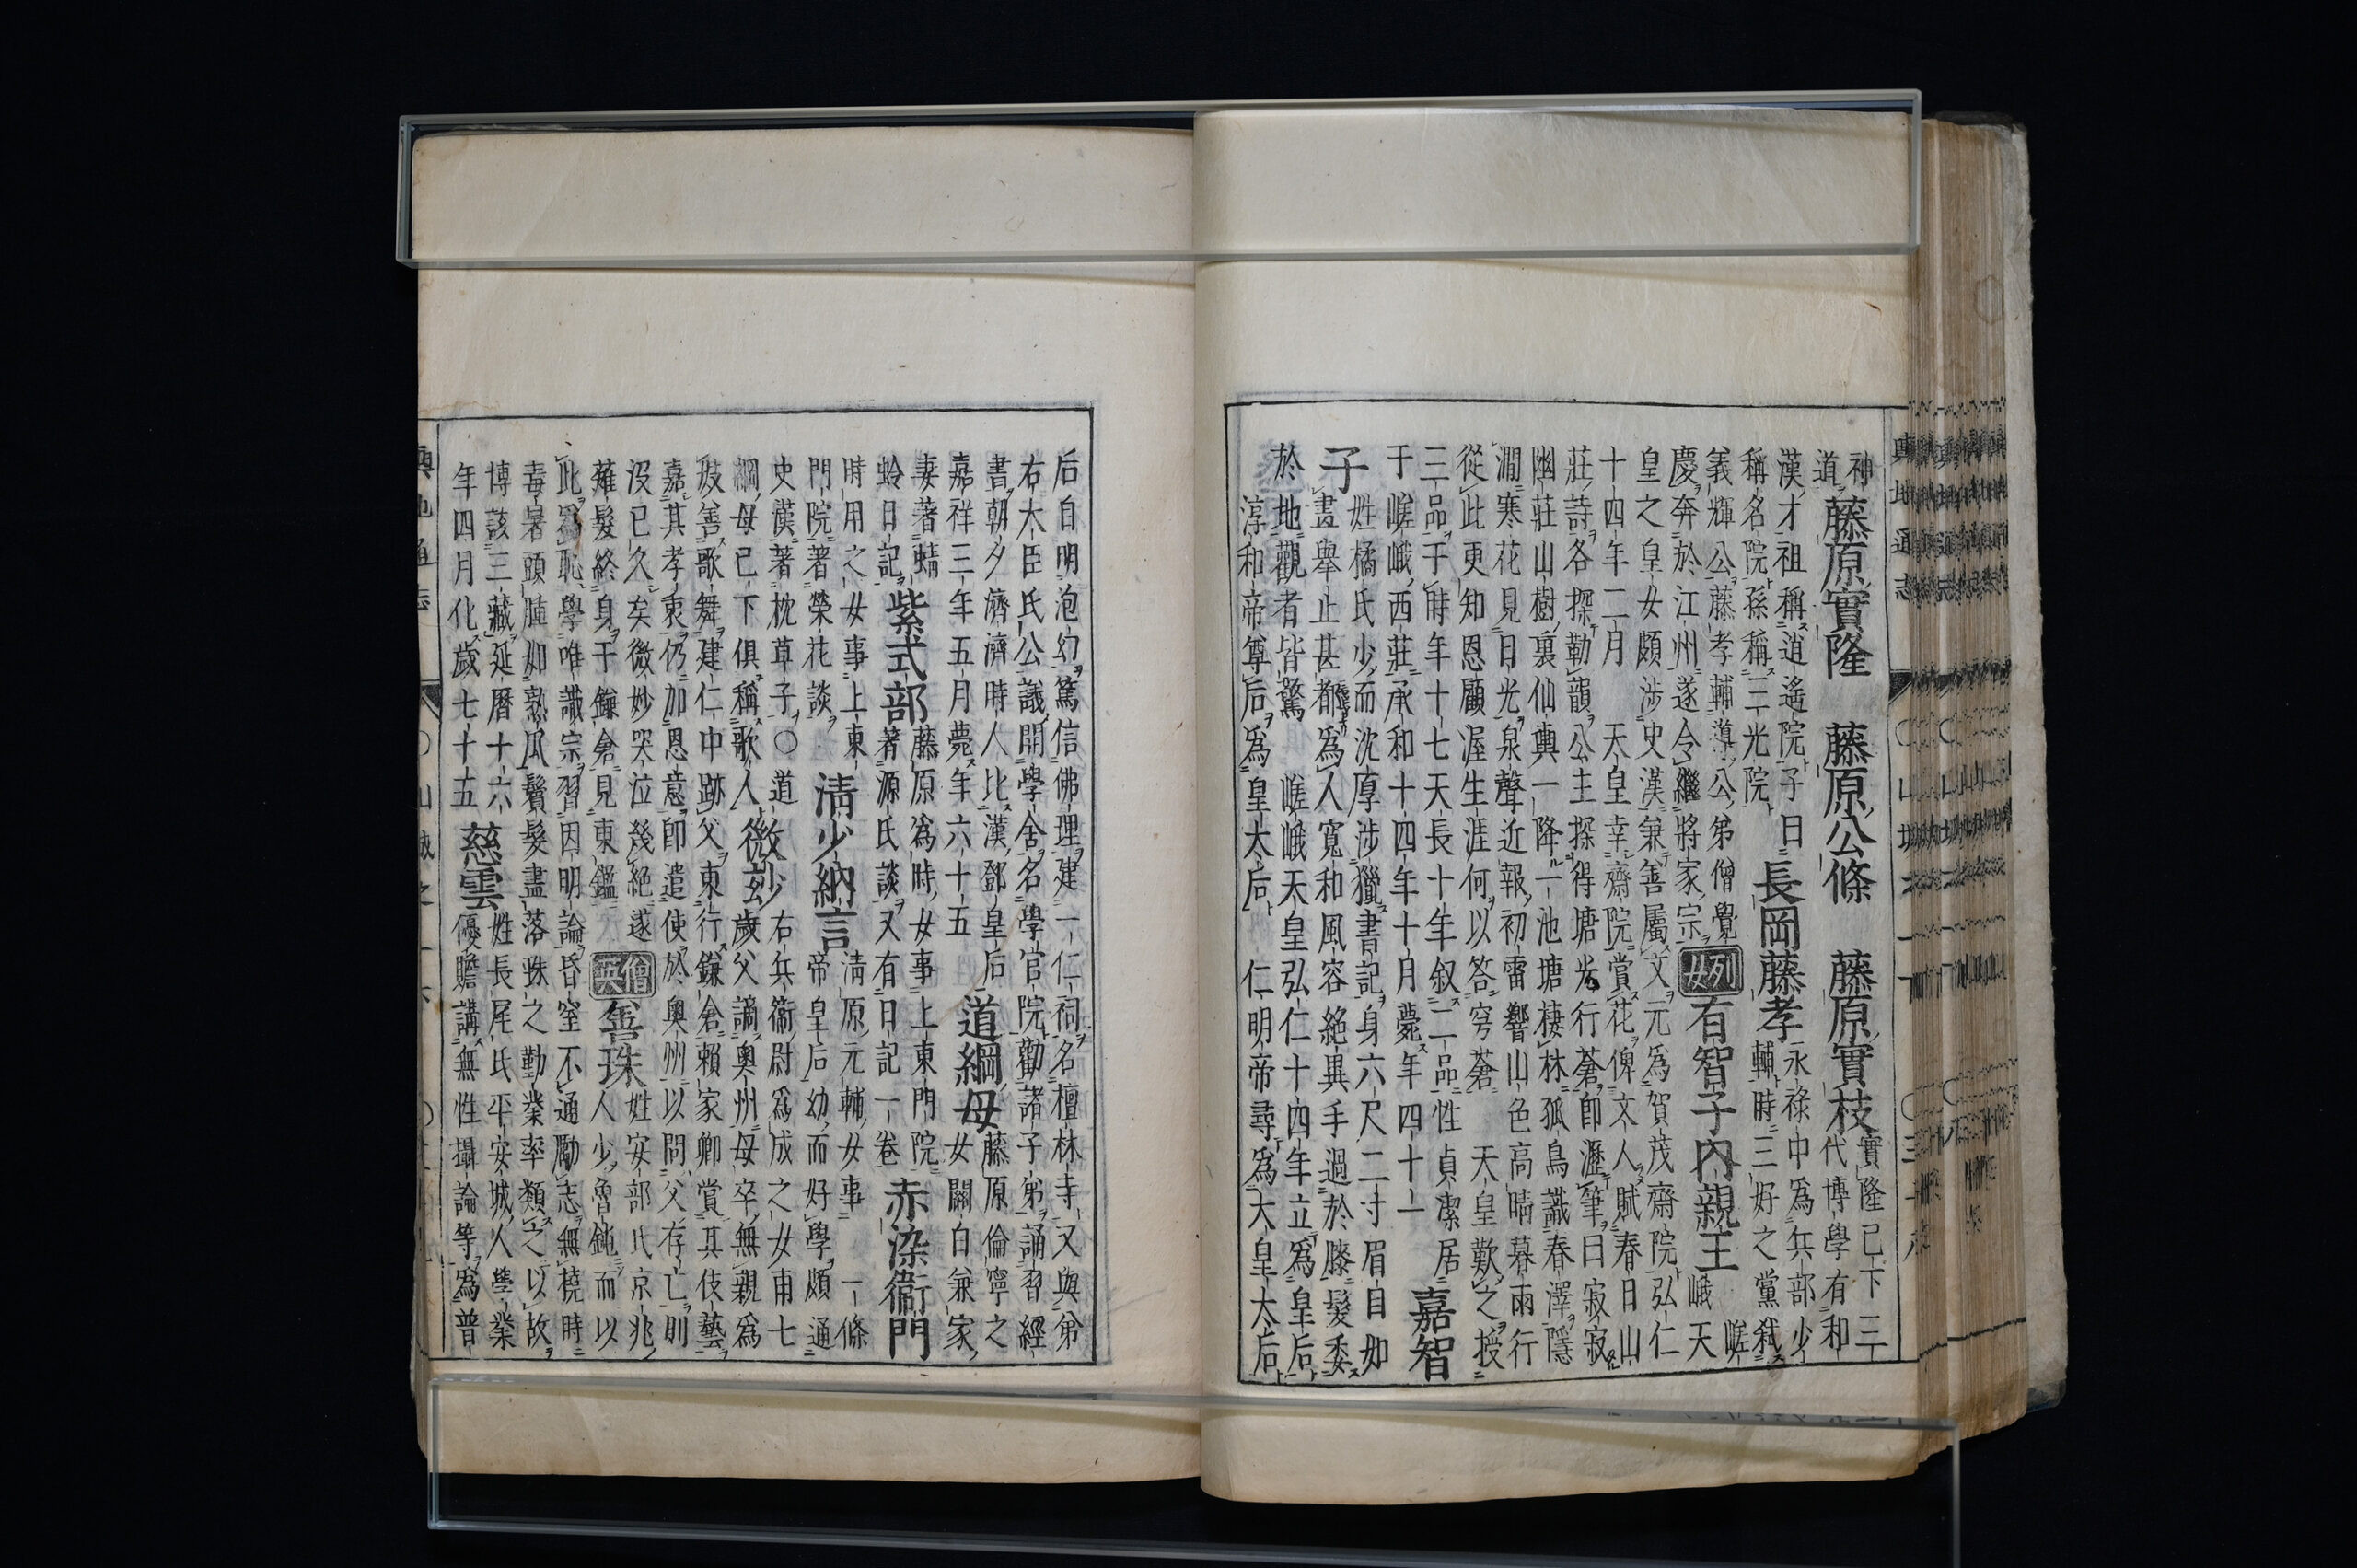 神道 藤原實隆 藤原公條 藤原實枝 實隆已下三代博學有和
漢才祖稱逍遙院子曰稱名院孫稱三光院 長岡藤孝 永祿中為兵部少輔時三好之黨弒
義輝公藤孝輔導公弟僧覺慶奔於江州遂令繼將家宗 列女 有智子內親王 嵯峨天
皇之皇女頗涉史漢兼善屬文元為賀茂齋院弘仁十四年二月 天皇幸齋院賞花俾文人賦春日山
莊詩各探勒韻公主探得塘光行蒼即瀝筆曰寂寂幽莊山樹裏仙輿一降一池塘棲林孤鳥識春澤隱
澗寒花見日光泉聲近報初雷響山色高晴暮雨行從此更知恩顧渥生涯何以答穹蒼 天皇歎之授
三品于時年十七天長十年叙二品性貞潔居于嵯峨西莊承和十四年十月薨年四十一 嘉智
子 姓橘氏少而沈厚涉獵書記身六尺二寸眉目如畫舉止甚都為人寬和風容絕異手過於膝髮委
於地觀者皆驚 嵯峨天皇弘仁十四年立為皇后 淳和帝尊后為皇太后 仁明帝尋為太皇太后
后自明泡幻篤信佛理建一仁祠名檀林寺又與弟右大臣氏公議開學舍名學官院勸諸子弟誦習經
書朝夕濟濟時人比漢鄧皇后嘉祥三年五月薨年六十五 道綱母 藤原倫寧之女關白兼家
妻著蜻蛉日記 紫式部 藤原為時女事上東門院著源氏談又有日記一卷 赤染衛門
時用之女事上東門院著榮花談 清少納言 清原元輔女事一條帝皇后幼而好學頗通
史漢著枕草子○道綱母已下俱稱歌人 微玅 右兵衛尉為成之女甫七歲父謫奧州母卒無親為
彼善歌舞建仁中跡父東行鎌倉賴家卿賞其伎藝嘉其孝衷仍加恩意即遣使於奧州以問父存亡則
沒已久矣微妙哭泣幾絕遂薙髮終身于鎌倉見東鑑 僧英 善珠 姓安部氏京兆人少魯鈍而以
此為恥學唯識宗習因明論昏窒不通勵志無橈時毒暑頭腫如熟瓜鬢髮盡落珠之勤業率類之以故
博該三藏延曆十六年四月化歲七十五 慈雲 姓長尾氏平安城人學業優贍講無性攝論等為普